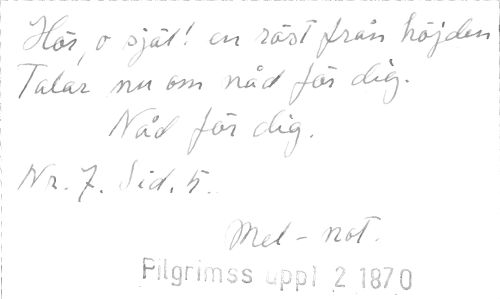 Hör, o själ! en röst från höjden
Talar nu om nåd för dig.
Nåd för dig.
Nr. 7. Sid. 5.
Mel-not.
Pilgrimss uppl 2 1870